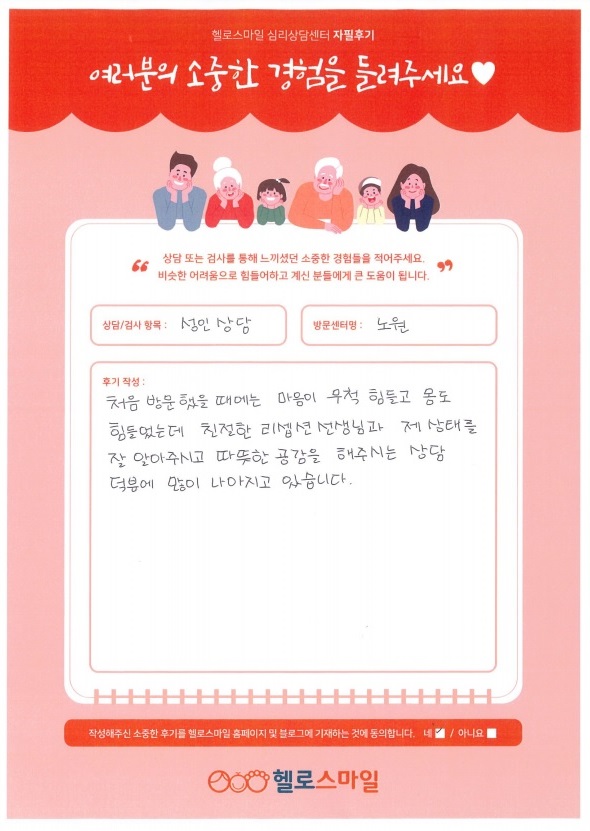 헬로스마일 심리상담센터 자필후기
여러분의 소중한 경험을 들려주세요
상담 또는 검사를 통해 느끼셨던 소중한 경험들을 적어주세요.
비슷한 어려움으로 힘들어하고 계신 분들에게 큰 도움이 됩니다.
상담/검사 항목 : 성인상담
방문센터명 : 노원
후기 작성 :
처음 방문했을 때에는 마음이 무척 힘들고 몸도
힘들었는데 친절한 리셉션 선생님과 제 상태를
잘 알아주시고 따뜻한 공감을 해주시는 상담
덕분에 많이 나아지고 있습니다.
작성해주신 소중한 후기를 헬로스마일 홈페이지 및 블로그에 기재하는 것에 동의합니다. 네 / 아니요
헬로스마일